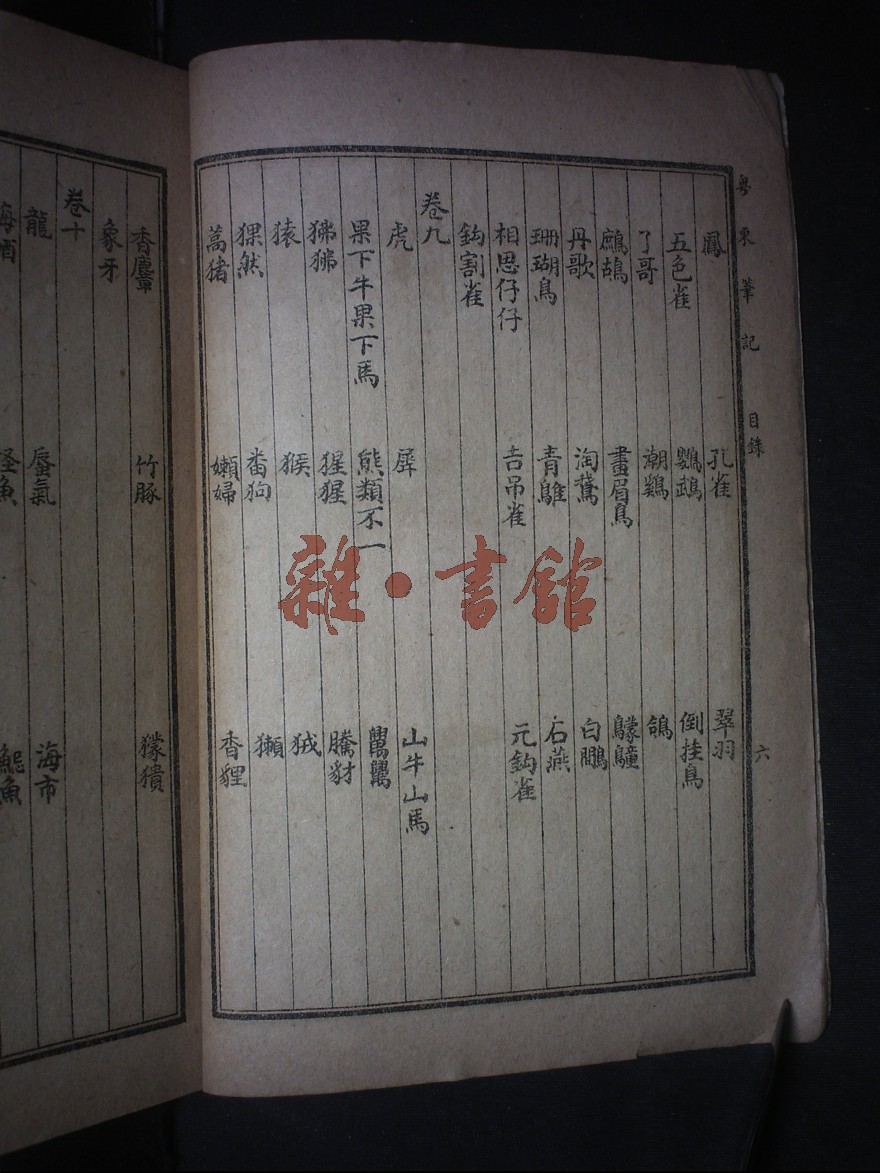 粵東筆記 目錄 六
鳳 孔雀 翠羽
五色雀 鸚鵡 倒挂鳥
了哥 潮鷄 鴿
鷓鴣 畫眉鳥 鸏鸛
丹歌 淘鵞 白鷴
珊瑚鳥 青鵻 石燕
相思仔仔 吉吊雀 元鈎雀
鈎割雀
卷九
虎 犀 山牛山馬
果下牛果下馬 熊類不一
狒狒 猩猩 騰豺
猿 猴 狨
猓然 番狗 獺
蒿猪 嬾婦 香貍
香麞 竹豚 獴㹍
象牙
卷十
龍 蜃氣 海市
怪魚
雜·書館